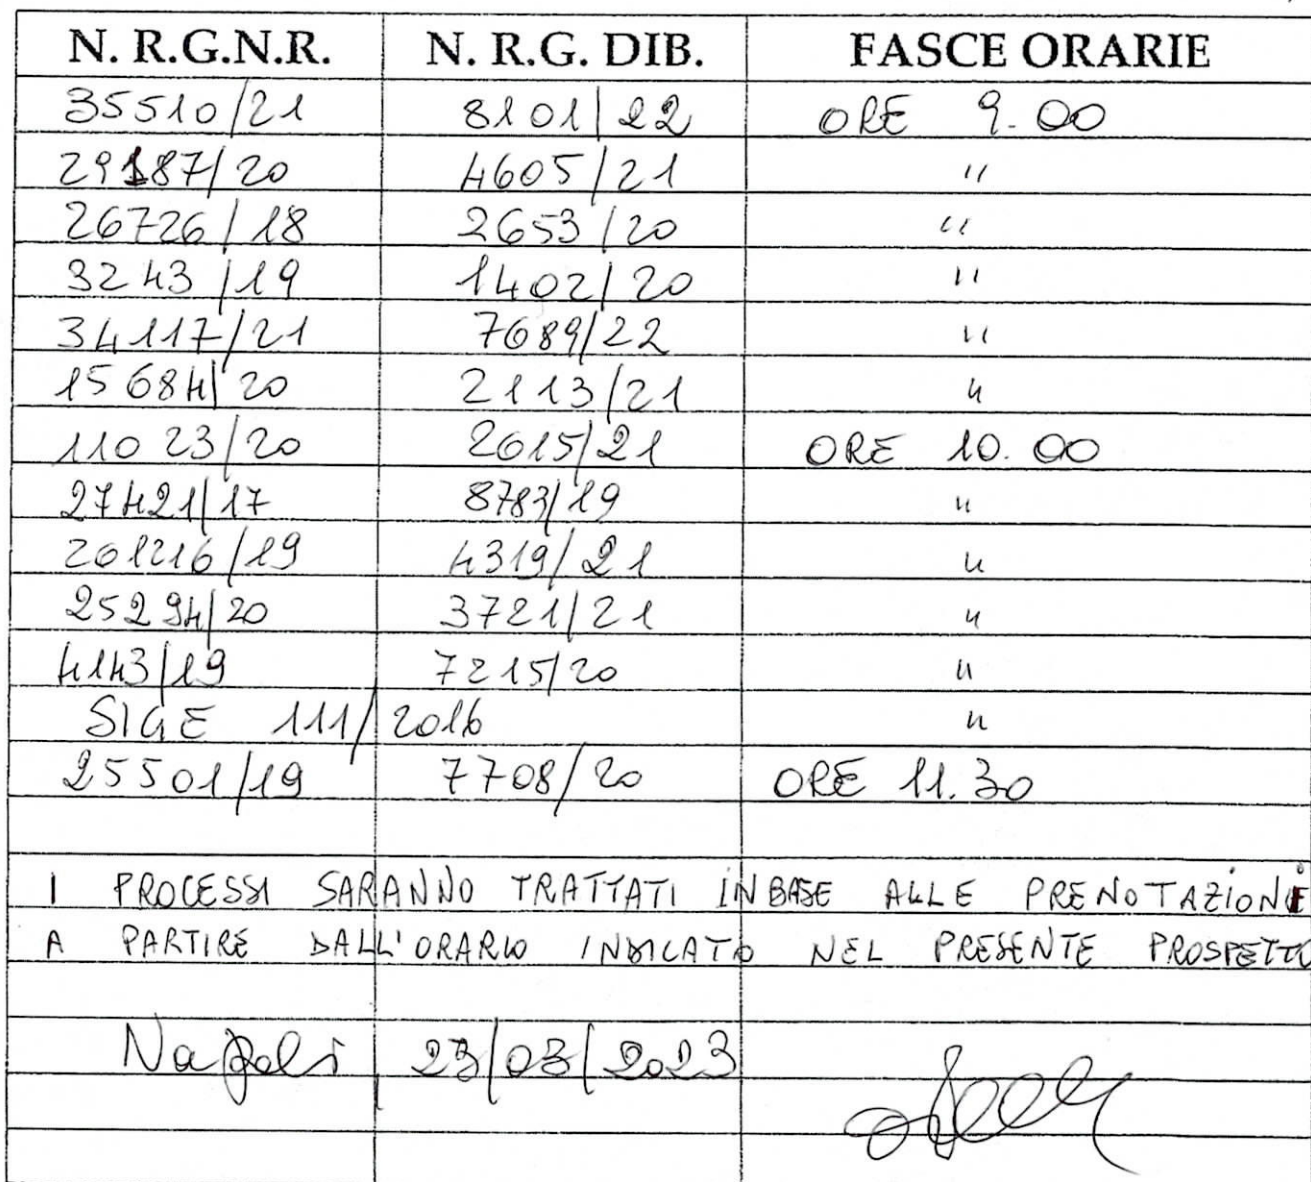 N. R.G.N.R. N. R.G. DIB. FASCE ORARIE
35510/21 8101/22 ORE 9.00
29187/20 4605/21 "
26726/18 2653/20 "
3243/19 1402/20 "
34117/21 7689/22 "
15684/20 2113/21 "
11023/20 2615/21 ORE 10.00
27421/17 8783/19 "
201216/19 4319/21 "
25294/20 3721/21 "
4143/19 7215/20 "
SIGE 111/2016 "
25501/19 7708/20 ORE 11.30
I PROCESSI SARANNO TRATTATI IN BASE ALLE PRENOTAZIONE
A PARTIRE DALL'ORARIO INDICATO NEL PRESENTE PROSPETTO
Napoli 23/03/2023